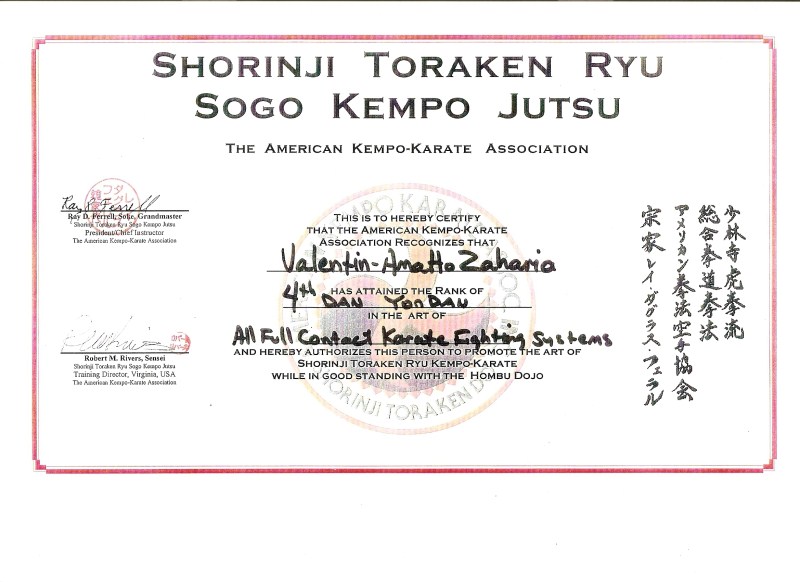 SHORINJI TORAKEN RYU
SOGO KEMPO JUTSU
THE AMERICAN KEMPO-KARATE ASSOCIATION
Ray D. Ferrell
Ray D. Ferrell, Soke, Grandmaster
Shorinji Toraken Ryu Sogo Kempo Jutsu
President/Chief Instructor
The American Kempo-Karate Association
Robert M. Rivers, Sensei
Shorinji Toraken Ryu Sogo Kempo Jutsu
Training Director, Virginia, USA
The American Kempo-Karate Association
THIS IS TO HEREBY CERTIFY
THAT THE AMERICAN KEMPO-KARATE
ASSOCIATION RECOGNIZES THAT
Valentin-Amatto Zaharia
HAS ATTAINED THE RANK OF
4th DAN YonDAN
IN THE ART OF
All Full Contact Karate Fighting Systems
AND HEREBY AUTHORIZES THIS PERSON TO PROMOTE THE ART OF
SHORINJI TORAKEN RYU KEMPO-KARATE
WHILE IN GOOD STANDING WITH THE HOMBU DOJO
少林寺虎拳流
総合拳道拳法
アメリカン拳法空手協会
宗家レイダグラス・フェラル
SHORINJI TORAKEN DO